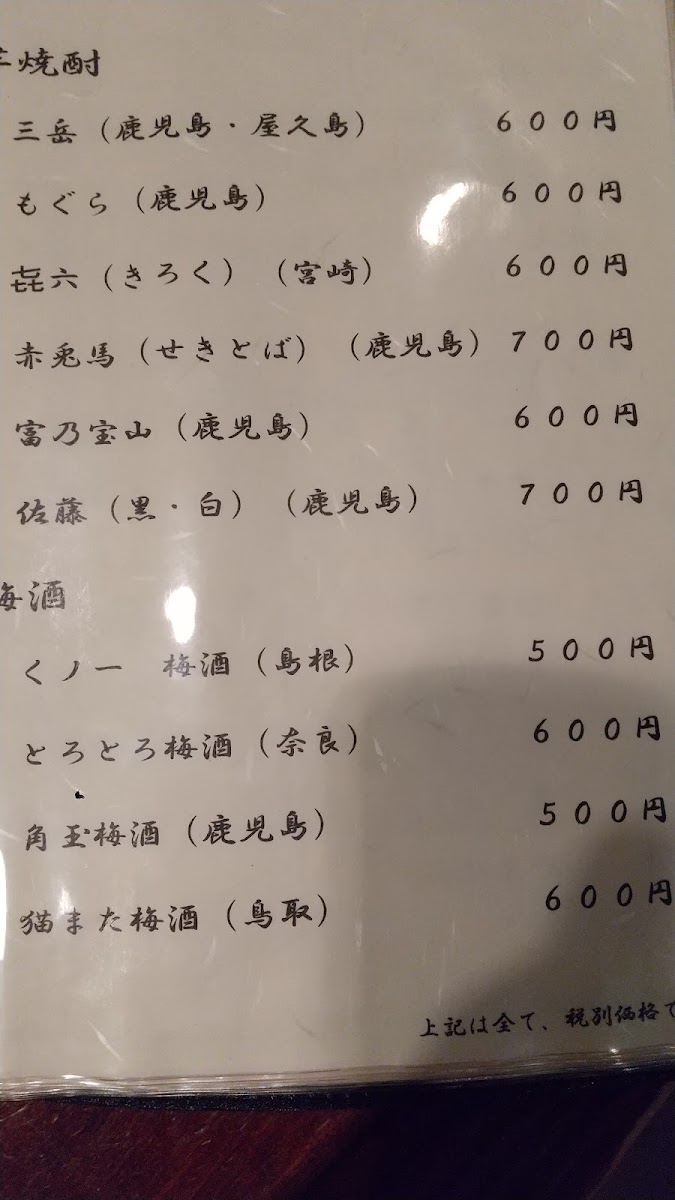 芋焼酎
三岳（鹿児島・屋久島） 600円
もぐら（鹿児島） 600円
㐂六（きろく）（宮崎） 600円
赤兎馬（せきとば）（鹿児島） 700円
富乃宝山（鹿児島） 600円
佐藤（黒・白）（鹿児島） 700円
梅酒
くノ一　梅酒（島根） 500円
とろとろ梅酒（奈良） 600円
角玉梅酒（鹿児島） 500円
猫また梅酒（鳥取） 600円
上記は全て、税別価格で